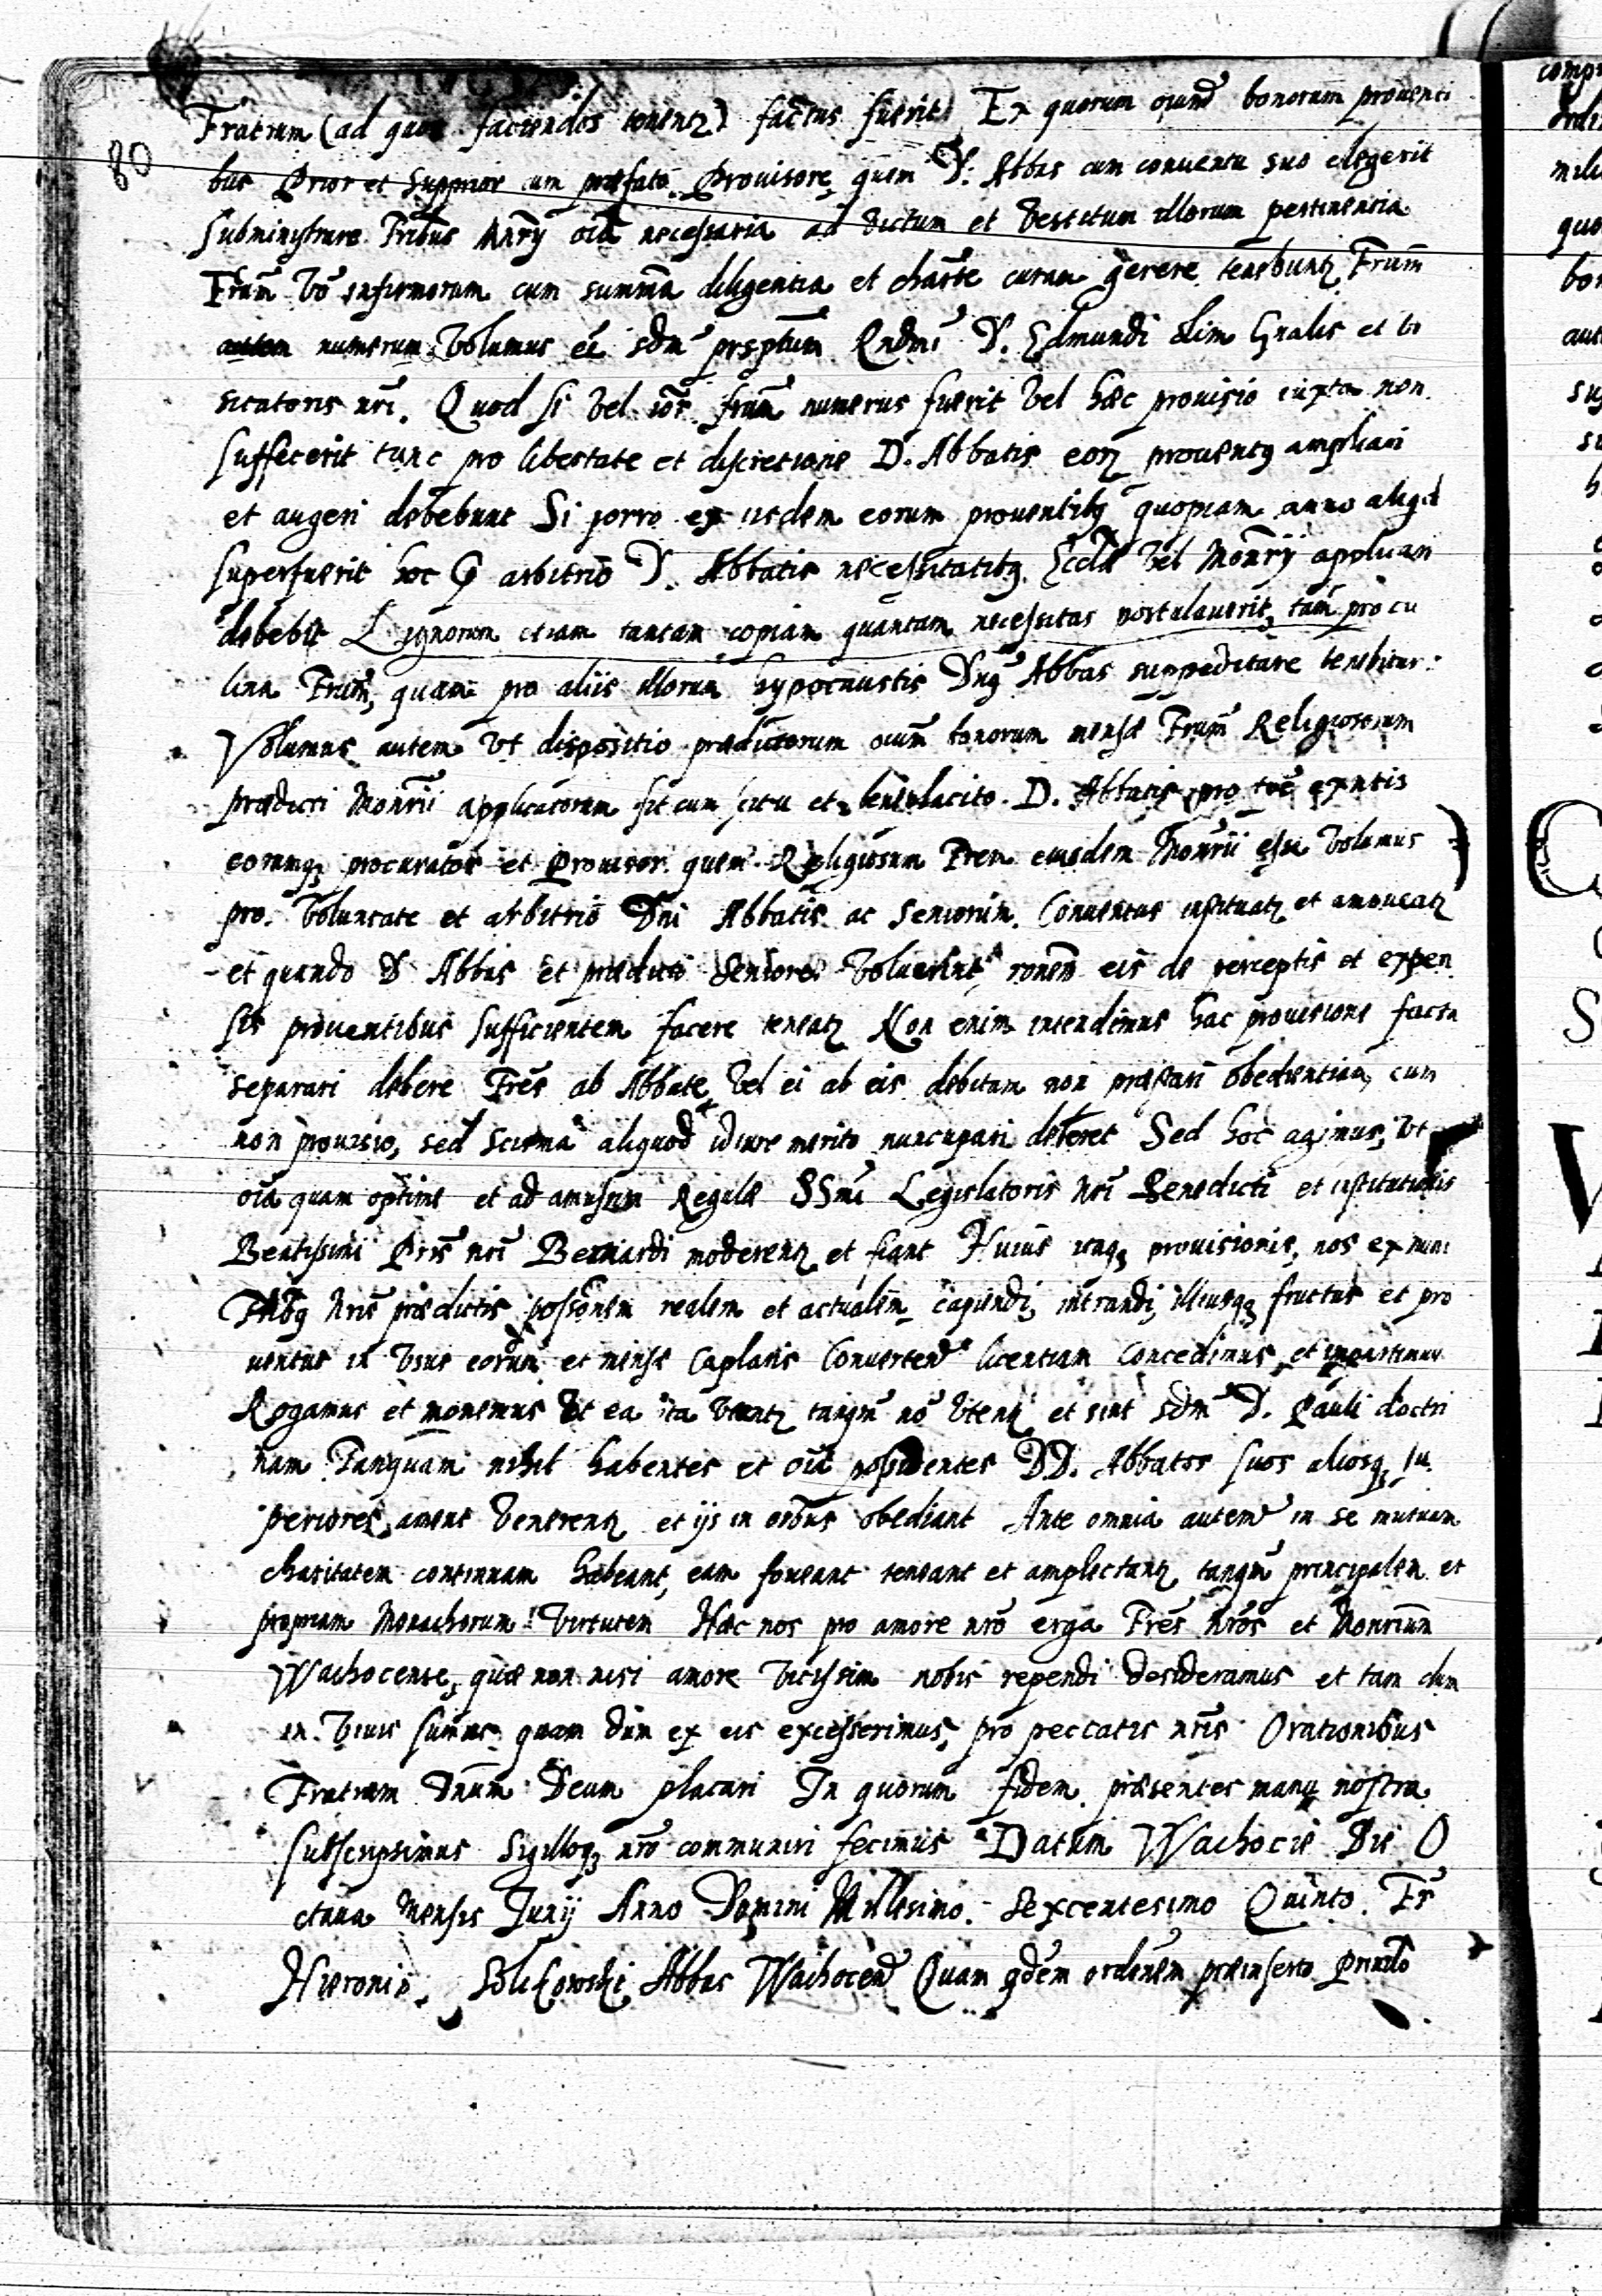 80
Fratrum (ad quos faciendos tenentr) factus fuerit) Ex quorum oium bonorum proventi
bus Prior et Supprior cum præfato Provisore, quem D: Abbas cum conventu suo elegerit
subministrare Fribus Mnrÿ oia necessaria ad victum et vestitum illorum pertinentia
Frum vo infirmorum cum summa diligentia et charte curam gerere tenebuntr Frum
numerum Volumus eē sdm prsptum Rndmi D. Edmundi olim Gnalis et vi
sitatoris nri. Quod si vel ior frum numerus fuerit vel hæc provisio iuxta non
suffecerit tunc pro libertate et discretione D. Abbatis eorz proventq ampliari
et augeri debebunt Si porro ex iisdem eorum proventibq quopiam anno aliqd
superfuerit hoc p arbitrio D. Abbatis necessitatibq Eccla vel Monrÿ applicari
debebit Lignorum etiam tantam copiam quantam necessitas postulaverit, tam pro cu
lina Frum, quam pro aliis illorum hypocaustis Dnq Abbas suppeditare tenebitur.
Volumus autem vt dispositio prædictorum oium bonorum mensæ Frum Religiosorum
prædicti Monrii applicatorum sit cum scitu et beneplacito D. Abbatis pro tpe exntis
eorumq procurator et Provisor quem Religiosum Frem eiusdem Monrii esse volumus
pro voluntate et arbitrio Dni Abbatis ac Seniorum Conventus instituatr et amoveatr
et quando D Abbas et prædicti Seniores voluerint, ronem eis de perceptis et expen
sis proventibus sufficientem facere teneatr Non enim intendimus hac provisione facta
separari debere Fres ab Abbate, vel ei ab eis debitam non præstari obedientiam, cum
non provisio, sed scisma aliquod id iure merito nuncupari deberet Sed hoc agimus, vt
oia quam optime et ad amussim Regulæ SSmi Legislatoris Nri Benedicti et institutionis
Beatissimi Pris nri Bernardi moderentr et fiant Huius itaq provisionis, nos ex nunc
Fribq Nris prædictis possonem realem et actualem capiendi, intrandi, illiusqq fructus et pro
ventus in vsus eorum et mensæ Caplaris Convertend licentiam Concedimus et impartimur
Rogamus et monemus vt ea ita vtantr tanqm no vtentr et sint sdm D. Pauli doctri
nam Tanquam nihil habentes et oia possidentes DD. Abbates suos aliosq su
periores ament Venerentr et ijs in oibus obediant Ante omnia autem in se mutuam
charitatem continuam habeant, eam foveant teneant et amplectantr tanqm principalem et
propriam Monachorum virtutem Hæc nos pro amore nro erga Fres Nros et Monrium
Wachocense, quæ non nisi amore vicissim nobis rependi desideramus et tam dum
in vivis sumus quam dum ex eis excesserimus, pro peccatis nris Orationibus
Fratrum Dnum Deum placari In quorum fidem præsentes manu nostra
subscripsimus Sigilloq nro communiri fecimus Datum Wachocie Die O
ctava Mensis Junij Anno Domini Millesimo Sexcentesimo Quinto. Fr
Hieronis Solikowski Abbas Wachocen Quam qdem ordinem præinserto